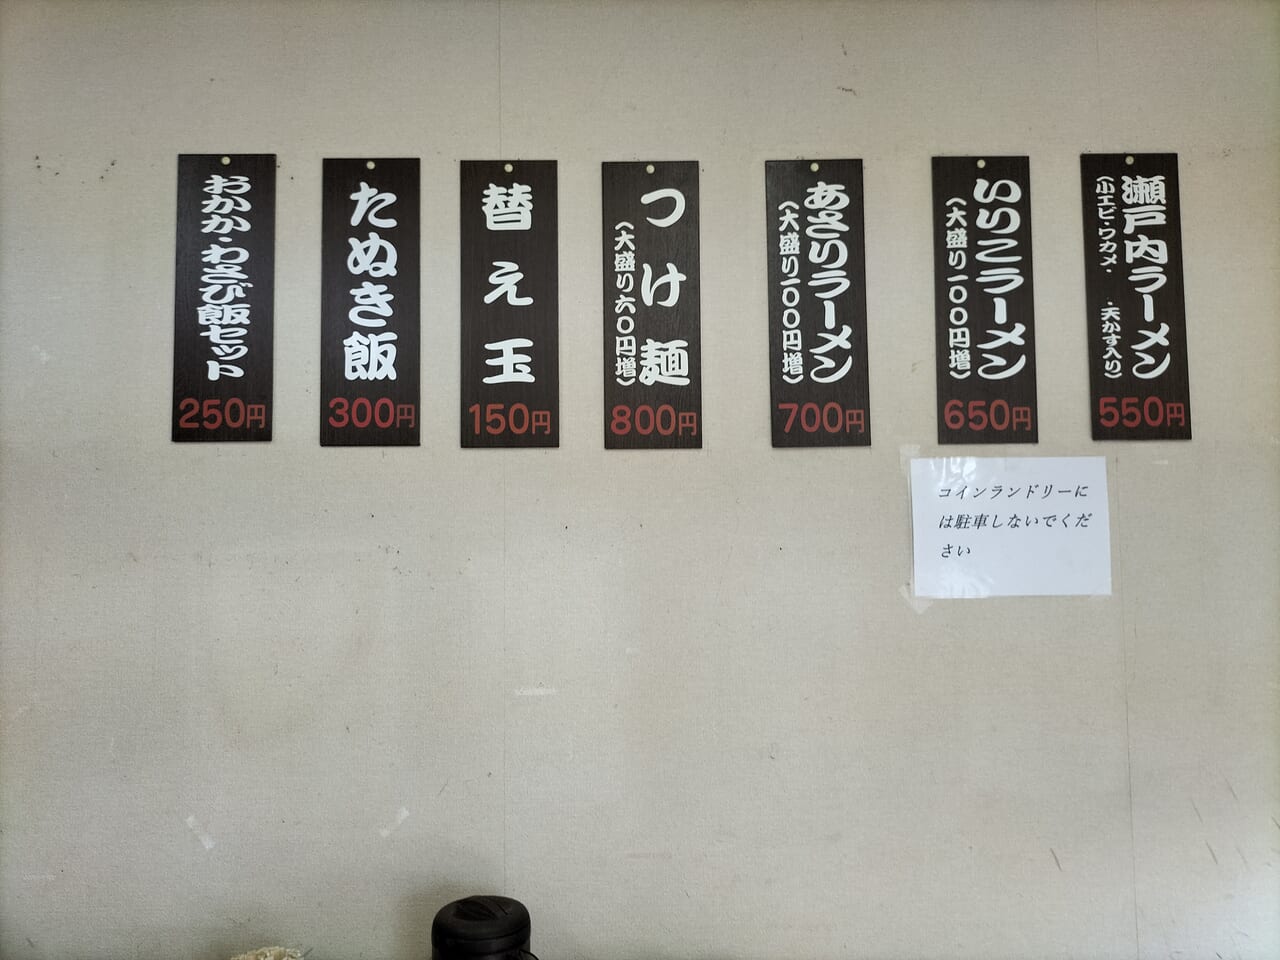 瀬戸内ラーメン
(小エビ・ワカメ・ ・天かす入り)
550円
いりこラーメン
(大盛り一〇〇円増)
650円
あさりラーメン
(大盛り一〇〇円増)
700円
つけ麺
(大盛り六〇円増)
800円
替え玉
150円
たぬき飯
300円
おかか・わさび飯セット
250円
コインランドリーに
は駐車しないでくだ
さい